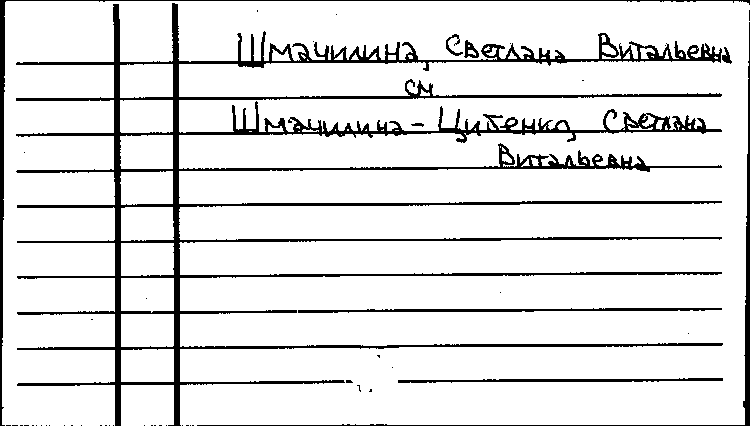 Шмачилина, Светлана Витальевна
см
Шмачилина-Цибенко, Светлана
Витальевна